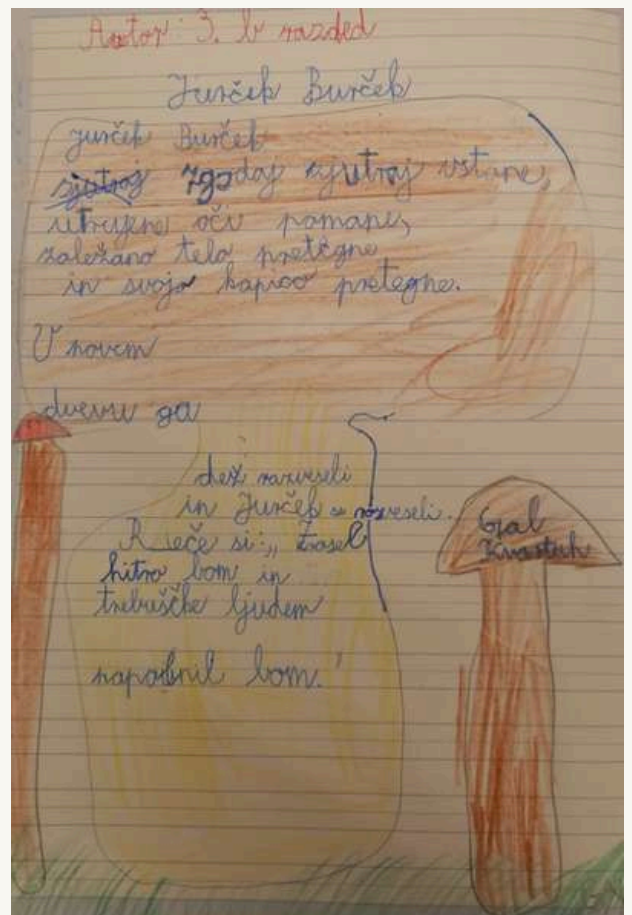 Avtor: 3. b razded
Jurček Burček
Jurček Burček
zgodaj zjutraj vstane,
utrujene oči pomane,
zaležano telo pretegne
in svojo kapico pretegne.
V novem
dnevu ga
dež razveseli
in Jurček se razveseli.
Reče si: „Zrasel
hitro bom in
trebuščke ljudem
napolnil bom."
Gal